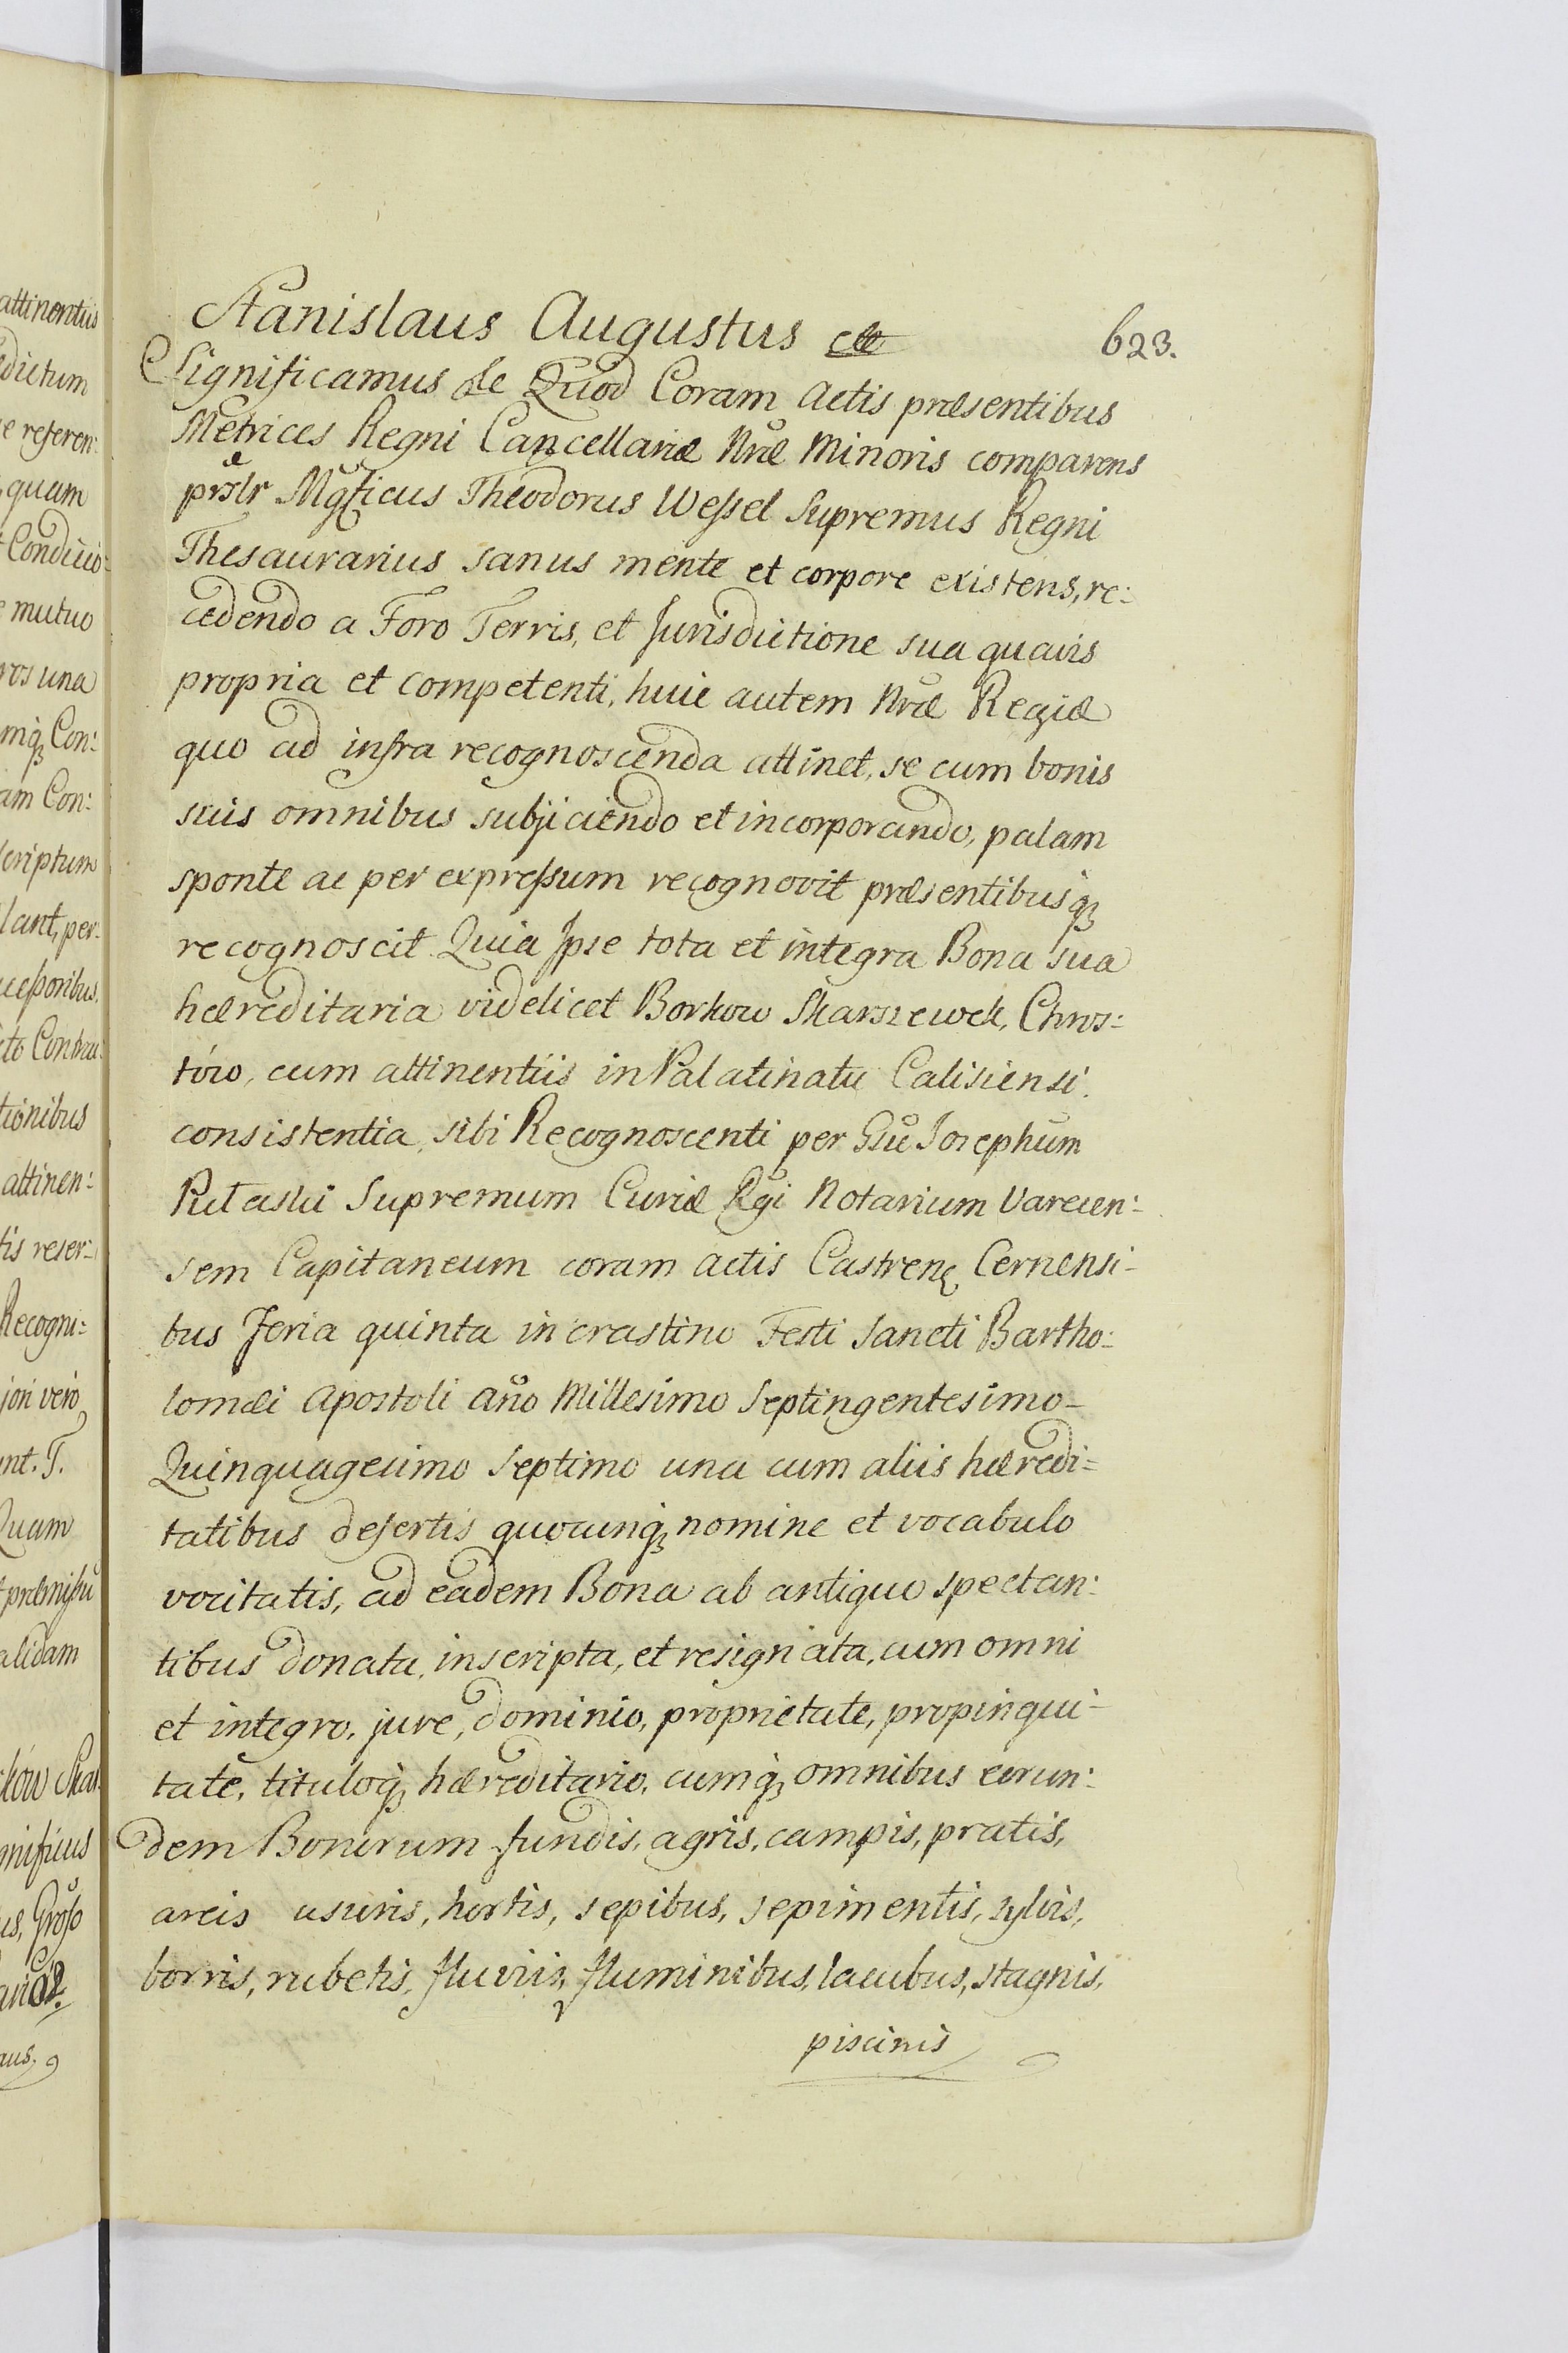 Stanislaus Augustus etc
623.
Significamus &c Quod Coram Actis præsentibus
Metrices Regni Cancellariæ Nræ Minoris comparens
prslr Mgficus Theodorus Wessel Supremus Regni
Thesaurarius sanus mente et corpore existens, re:
cedendo a Foro Terris, et Jurisdictione sua quavis
propria et competenti, huic autem Nræ Regiæ
quo ad infra recognoscenda attinet, se cum bonis
suis omnibus subjiciendo et incorporando, palam
sponte ac per expressum recognovit præsentibusq
recognoscit Quia Ipse tota et integra Bona sua
hæreditaria videlicet Borkow Skarszewek, Chros:
tów, cum attinentiis in Palatinatu Calisiensi
consistentia, sibi Recognoscenti per Gsũ Josephum
Supremum Curiæ Rgi Notarium Varecen:
sem Capitaneum coram Actis Castren Cernensi-
bus Feria quinta in crastino Festi Sancti Bartho:
lomæi Apostoli Año Millesimo Septingentesimo-
Quinquagesimo Septimo una cum aliis hæredi=
tatibus desertis quocunq nomine et vocabulo
vocitatis, ad eadem Bona ab antiquo spectan:
tibus donata, inscripta, et resignata, cum omni
et integro, jure, dominio, proprietate, propinqui-
tate, tituloq hæreditario, cumq omnibus eorun:
dem Bonorum fundis, agris, campis, pratis,
areis usuris, hortis, sepibus, sepimentis, sylvis,
borris, rubetis, fluviis, fluminibus, lacubus, stagnis,
piscinis